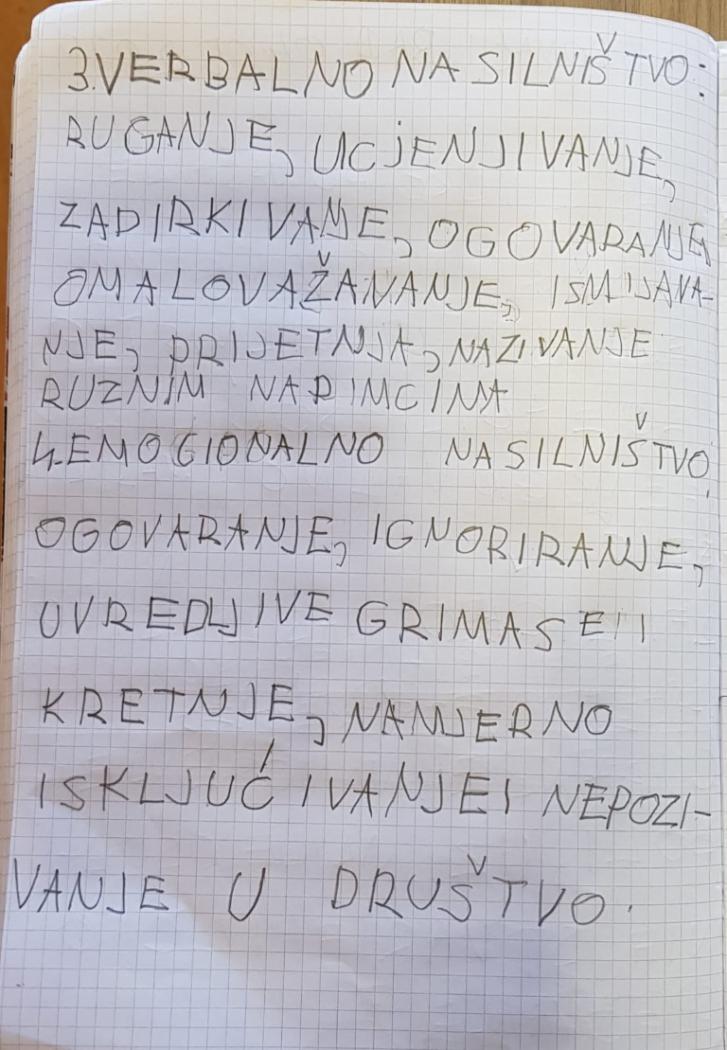 3.VERBALNO NASILNIŠTVO:
RUGANJE, UCJENJIVANJE,
ZADIRKIVANJE, OGOVARANJE,
OMALOVAŽAVANJE, ISMIJAVA-
NJE, PRIJETNJA, NAZIVANJE
RUZNIM NADIMCIMA
4.EMOCIONALNO NASILNIŠTVO:
OGOVARANJE, IGNORIRANJE,
UVREDLJIVE GRIMASE I
KRETNJE, NAMJERNO
ISKLJUĆIVANJE I NEPOZI-
VANJE U DRUŠTVO.